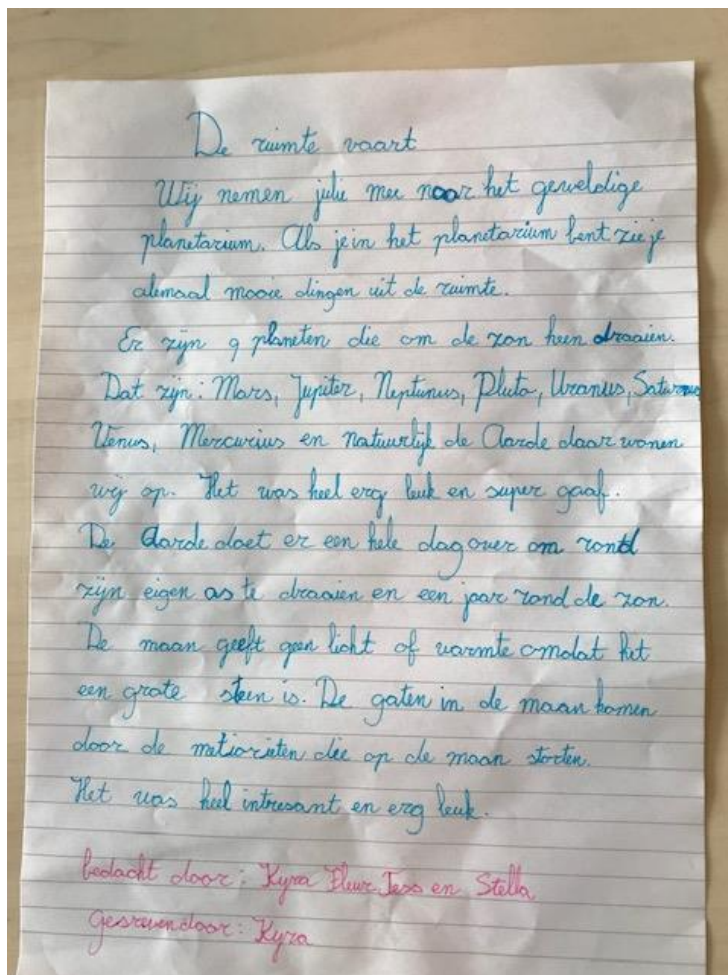 De ruimte vaart
Wij nemen julie mee naar het geweldige
planetarium. Als je in het planetarium bent zie je
alemaal mooie dingen uit de ruimte.
Er zijn 9 planeten die om de zon heen draaien.
Dat zijn: Mars, Jupiter, Neptunus, Pluto, Uranus, Saturnus
Venus, Mercurius en natuurlijk de Aarde daar wonen
wij op. Het was heel erg leuk en super gaaf.
De Aarde doet er een hele dag over om rond
zijn eigen as te draaien en een jaar rond de zon.
De maan geeft geen licht of warmte omdat het
een grote steen is. De gaten in de maan komen
door de metiorieten die op de maan storten.
Het was heel intresant en erg leuk.
bedacht door: Kyra Fleur Jess en Stella
Gesreven door: Kyra